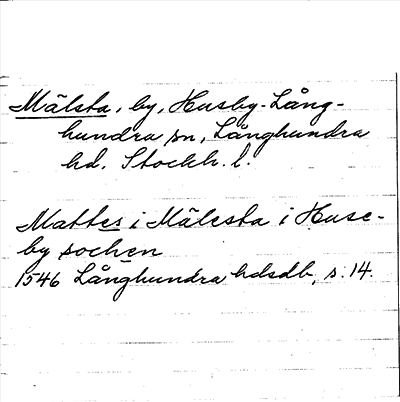 Mälsta, by, Husby-Lång-
hundra sn, Långhundra
hd. Stockh. l.
Mattes i Mälesta i Huse-
by sochen
1546 Långhundra hdsdb, s. 14.